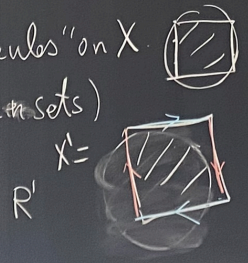 ules" on X.
sets)
X' =
R'